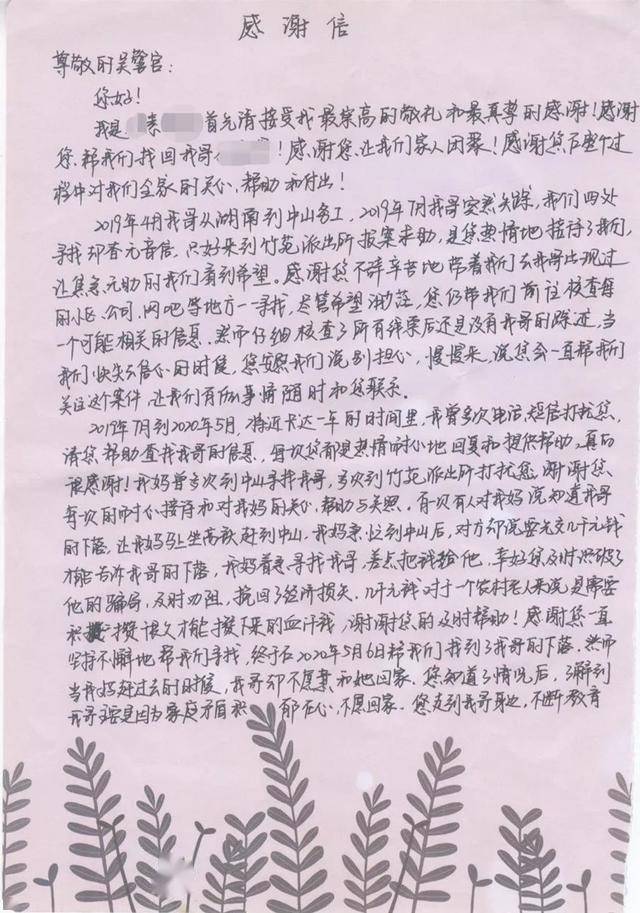 感谢信
尊敬的吴警官：
您好！
我是 首先请接受我最崇高的敬礼和最真挚的感谢！感谢
您帮我们找回我哥 ！感谢您让我们家人团聚！感谢您在整个过
程中对我们全家的关心，帮助和付出！
2019年4月我哥从湖南到中山务工，2019年7月我哥突然失踪，我们四处
寻找却杳无音信，只好来到竹苑派出所报案求助，是您热情地接待了我们，
让焦急无助的我们看到希望。感谢您不辞辛苦地带着我们去我哥出现过
的小区、公司、网吧等地方一一寻找，尽管希望渺茫，您仍带我们前往核查每
一个可能相关的信息。然而仔细核查了所有线索后还是没有我哥的踪迹，当
我们快失去信心的时候，您安慰我们说别担心，慢慢来，说您会一直帮我们
关注这个案件，让我们有任何事情随时和您联系。
2019年7月到2020年5月，将近长达一年的时间里，我曾多次电话、短信打扰您，
请您帮助查找我哥的信息，每次您都是热情耐心地回复和提供帮助，真的
很感谢！我妈曾多次到中山寻找我哥，多次到竹苑派出所打扰您，谢谢您
每次的耐心接待和对我妈的关心、帮助与关照。有次有人对我妈说知道我哥
的下落，让我妈马上坐高铁赶到中山，我妈匆忙到中山后，对方却说要先交几千元钱
才能告诉我哥的下落，我妈着急寻找我哥，差点把钱给他，幸好您及时识破了
他的骗局，及时劝阻，挽回了经济损失，几千元钱对于一个农村老人来说是需要
积攒很久才能攒下来的血汗钱，谢谢您的及时帮助！感谢您一直
坚持不懈地帮我们寻找，终于在2020年5月6日帮我们找到了我哥的下落。然而
当我妈赶过去的时候，我哥却不愿意和她回家。您知道了情况后，了解到
我哥主要是因为家庭矛盾积 郁在心，不愿回家。您走到我哥身边，不断教育